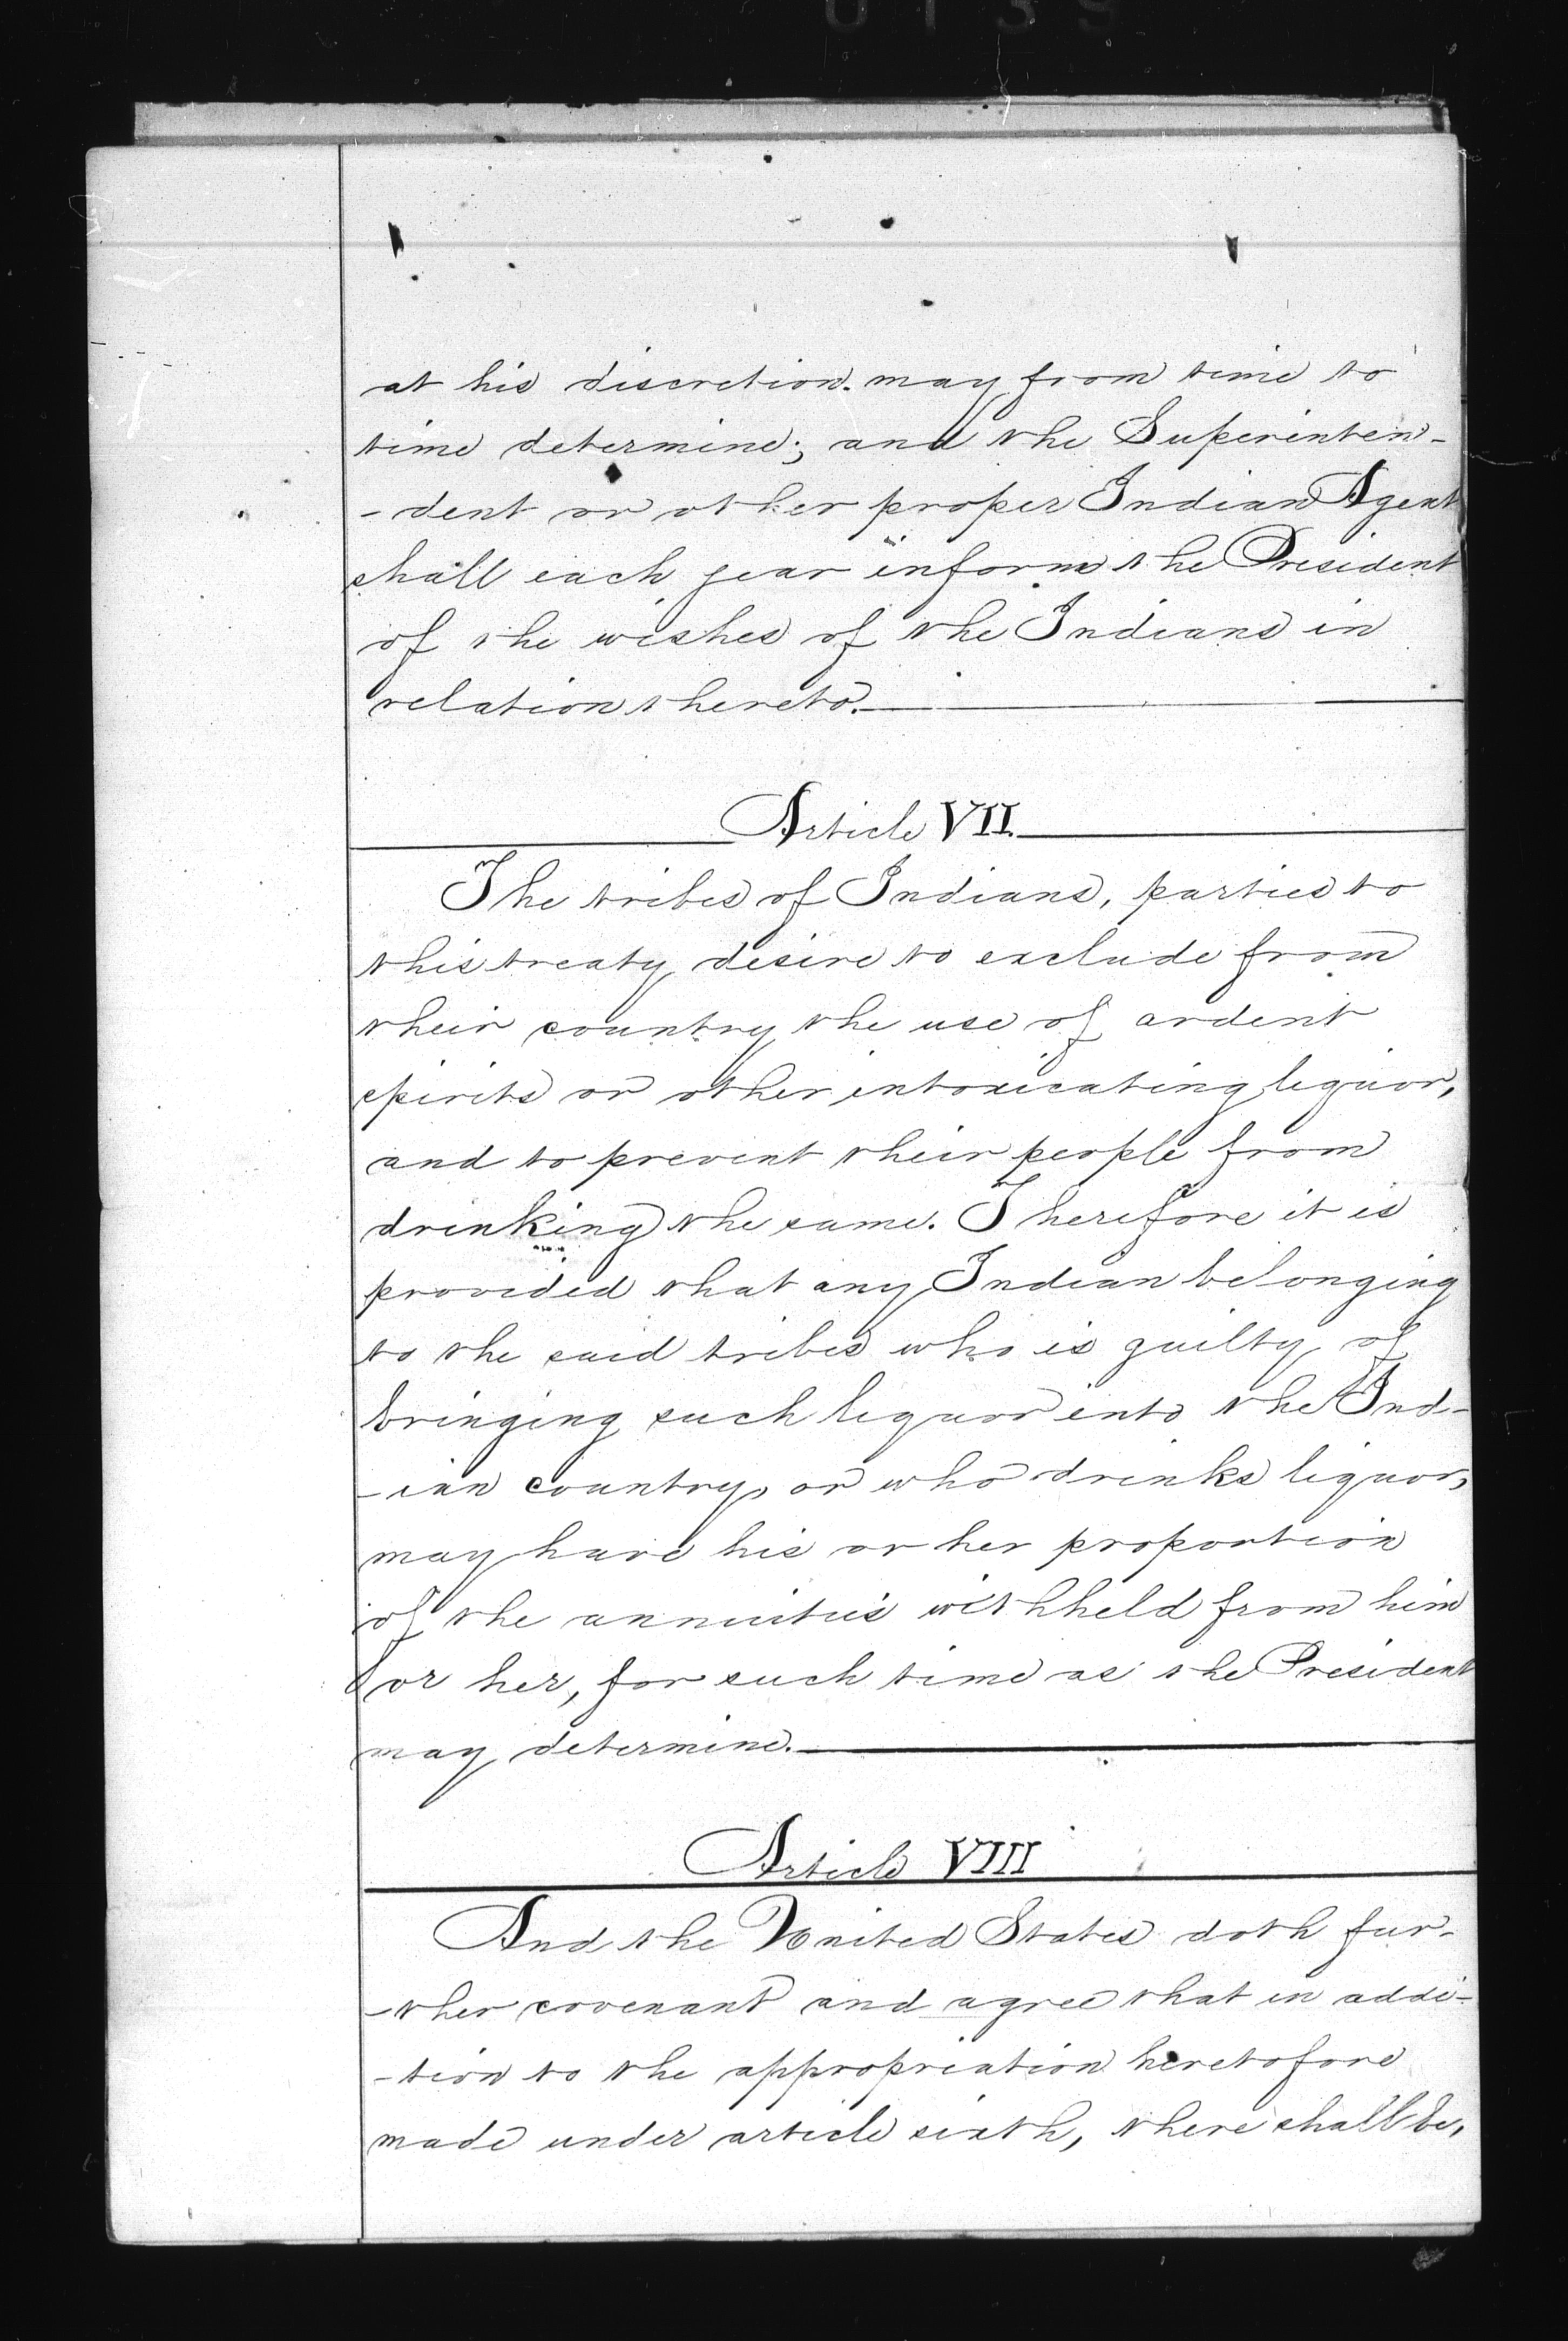 0139
at his discretion. may from time to
time determine; and the Superinten-
-dent or other proper Indian Agent
shall each year inform the President
of the wishes of the Indians in
relation thereto.
Article VII.
The tribes of Indians, parties to
this treaty desire to exclude from
their country the use of ardent
spirits or other intoxicating liquor,
and to prevent their people from
drinking the same. Therefore it is
provided that any Indian belonging
to the said tribes who is guilty of
bringing such liquor into the Ind-
-ian country, or who drinks liquor,
may have his or her proportion
of the annuities withheld from him
or her, for such time as the President
may determine.
Article VIII
And the United States doth fur-
-ther covenant and agree that in addi-
-tion to the appropriation heretofore
made under article sixth, there shall be,